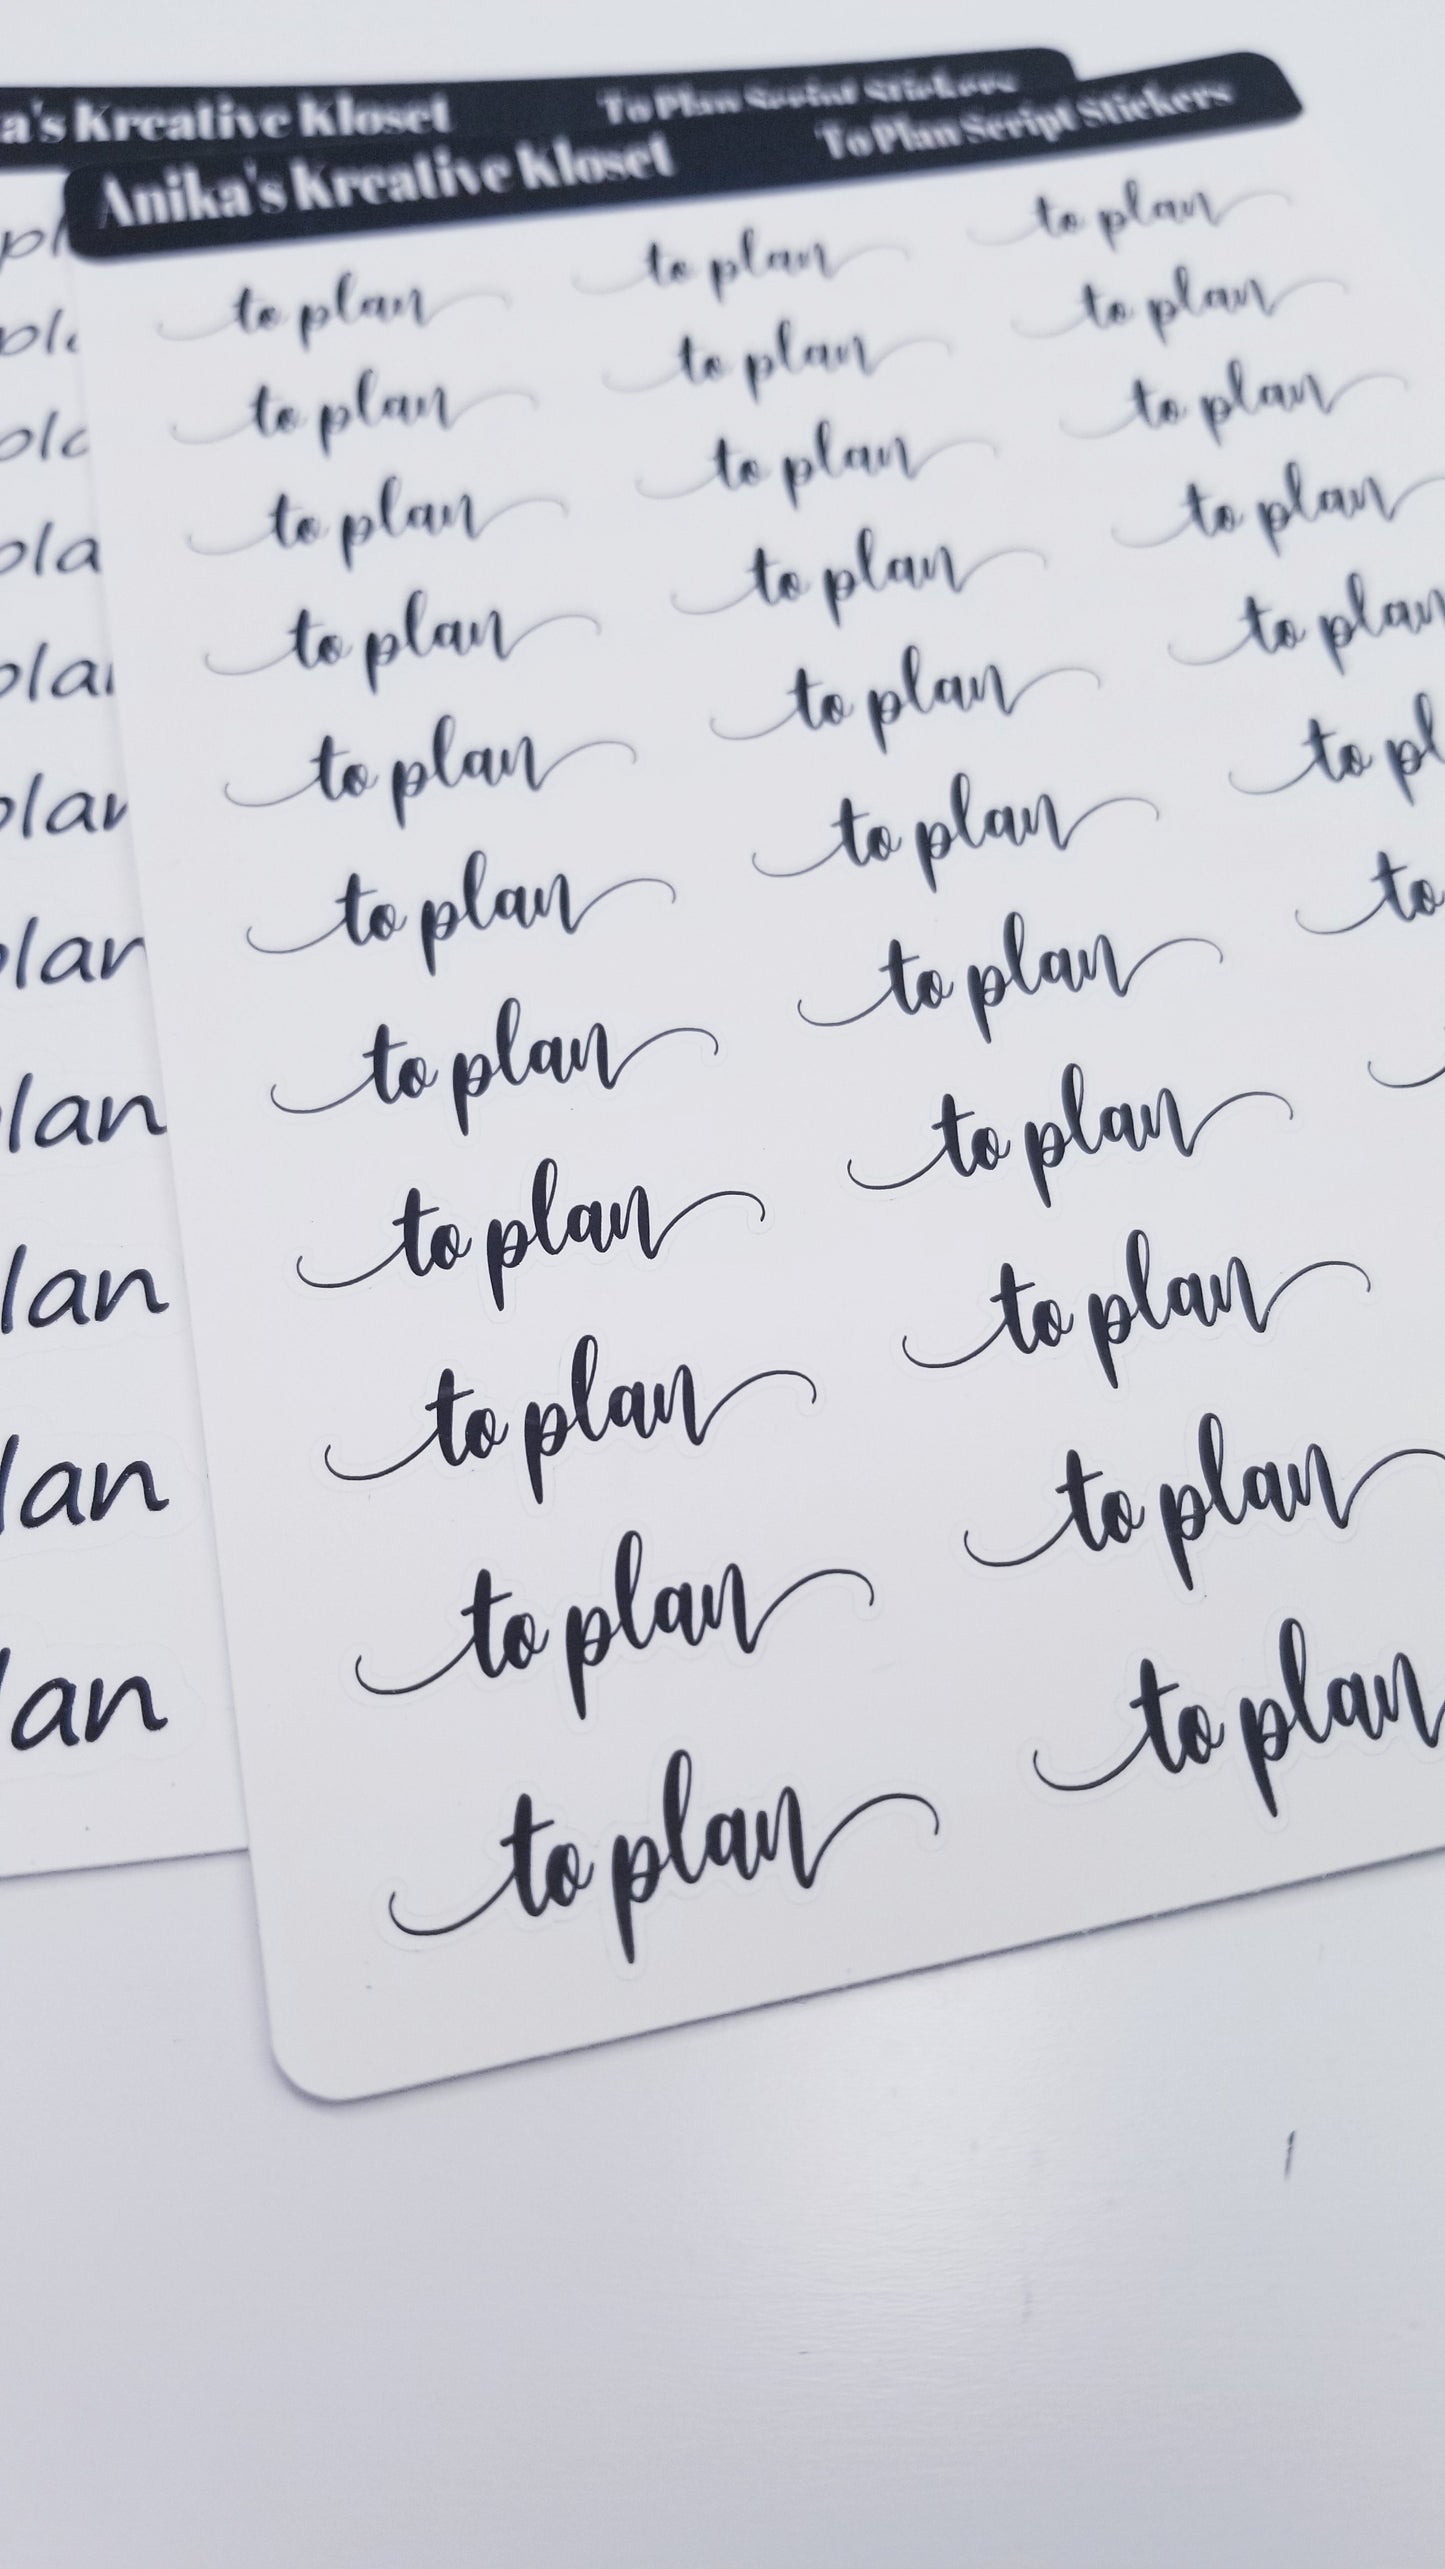 a's Kreative Kloset To Plan Script Stickers
pl
pla
pla
pla
plan
plan
plan
lan
lan
lan
lan
Anika's Kreative Kloset To Plan Script Stickers
to plan to plan to plan
to plan to plan to plan
to plan to plan to plan
to plan to plan to plan
to plan to plan to plan
to plan to plan to pl
to plan to plan to
to plan to plan
to plan to plan
to plan to plan
to plan to plan